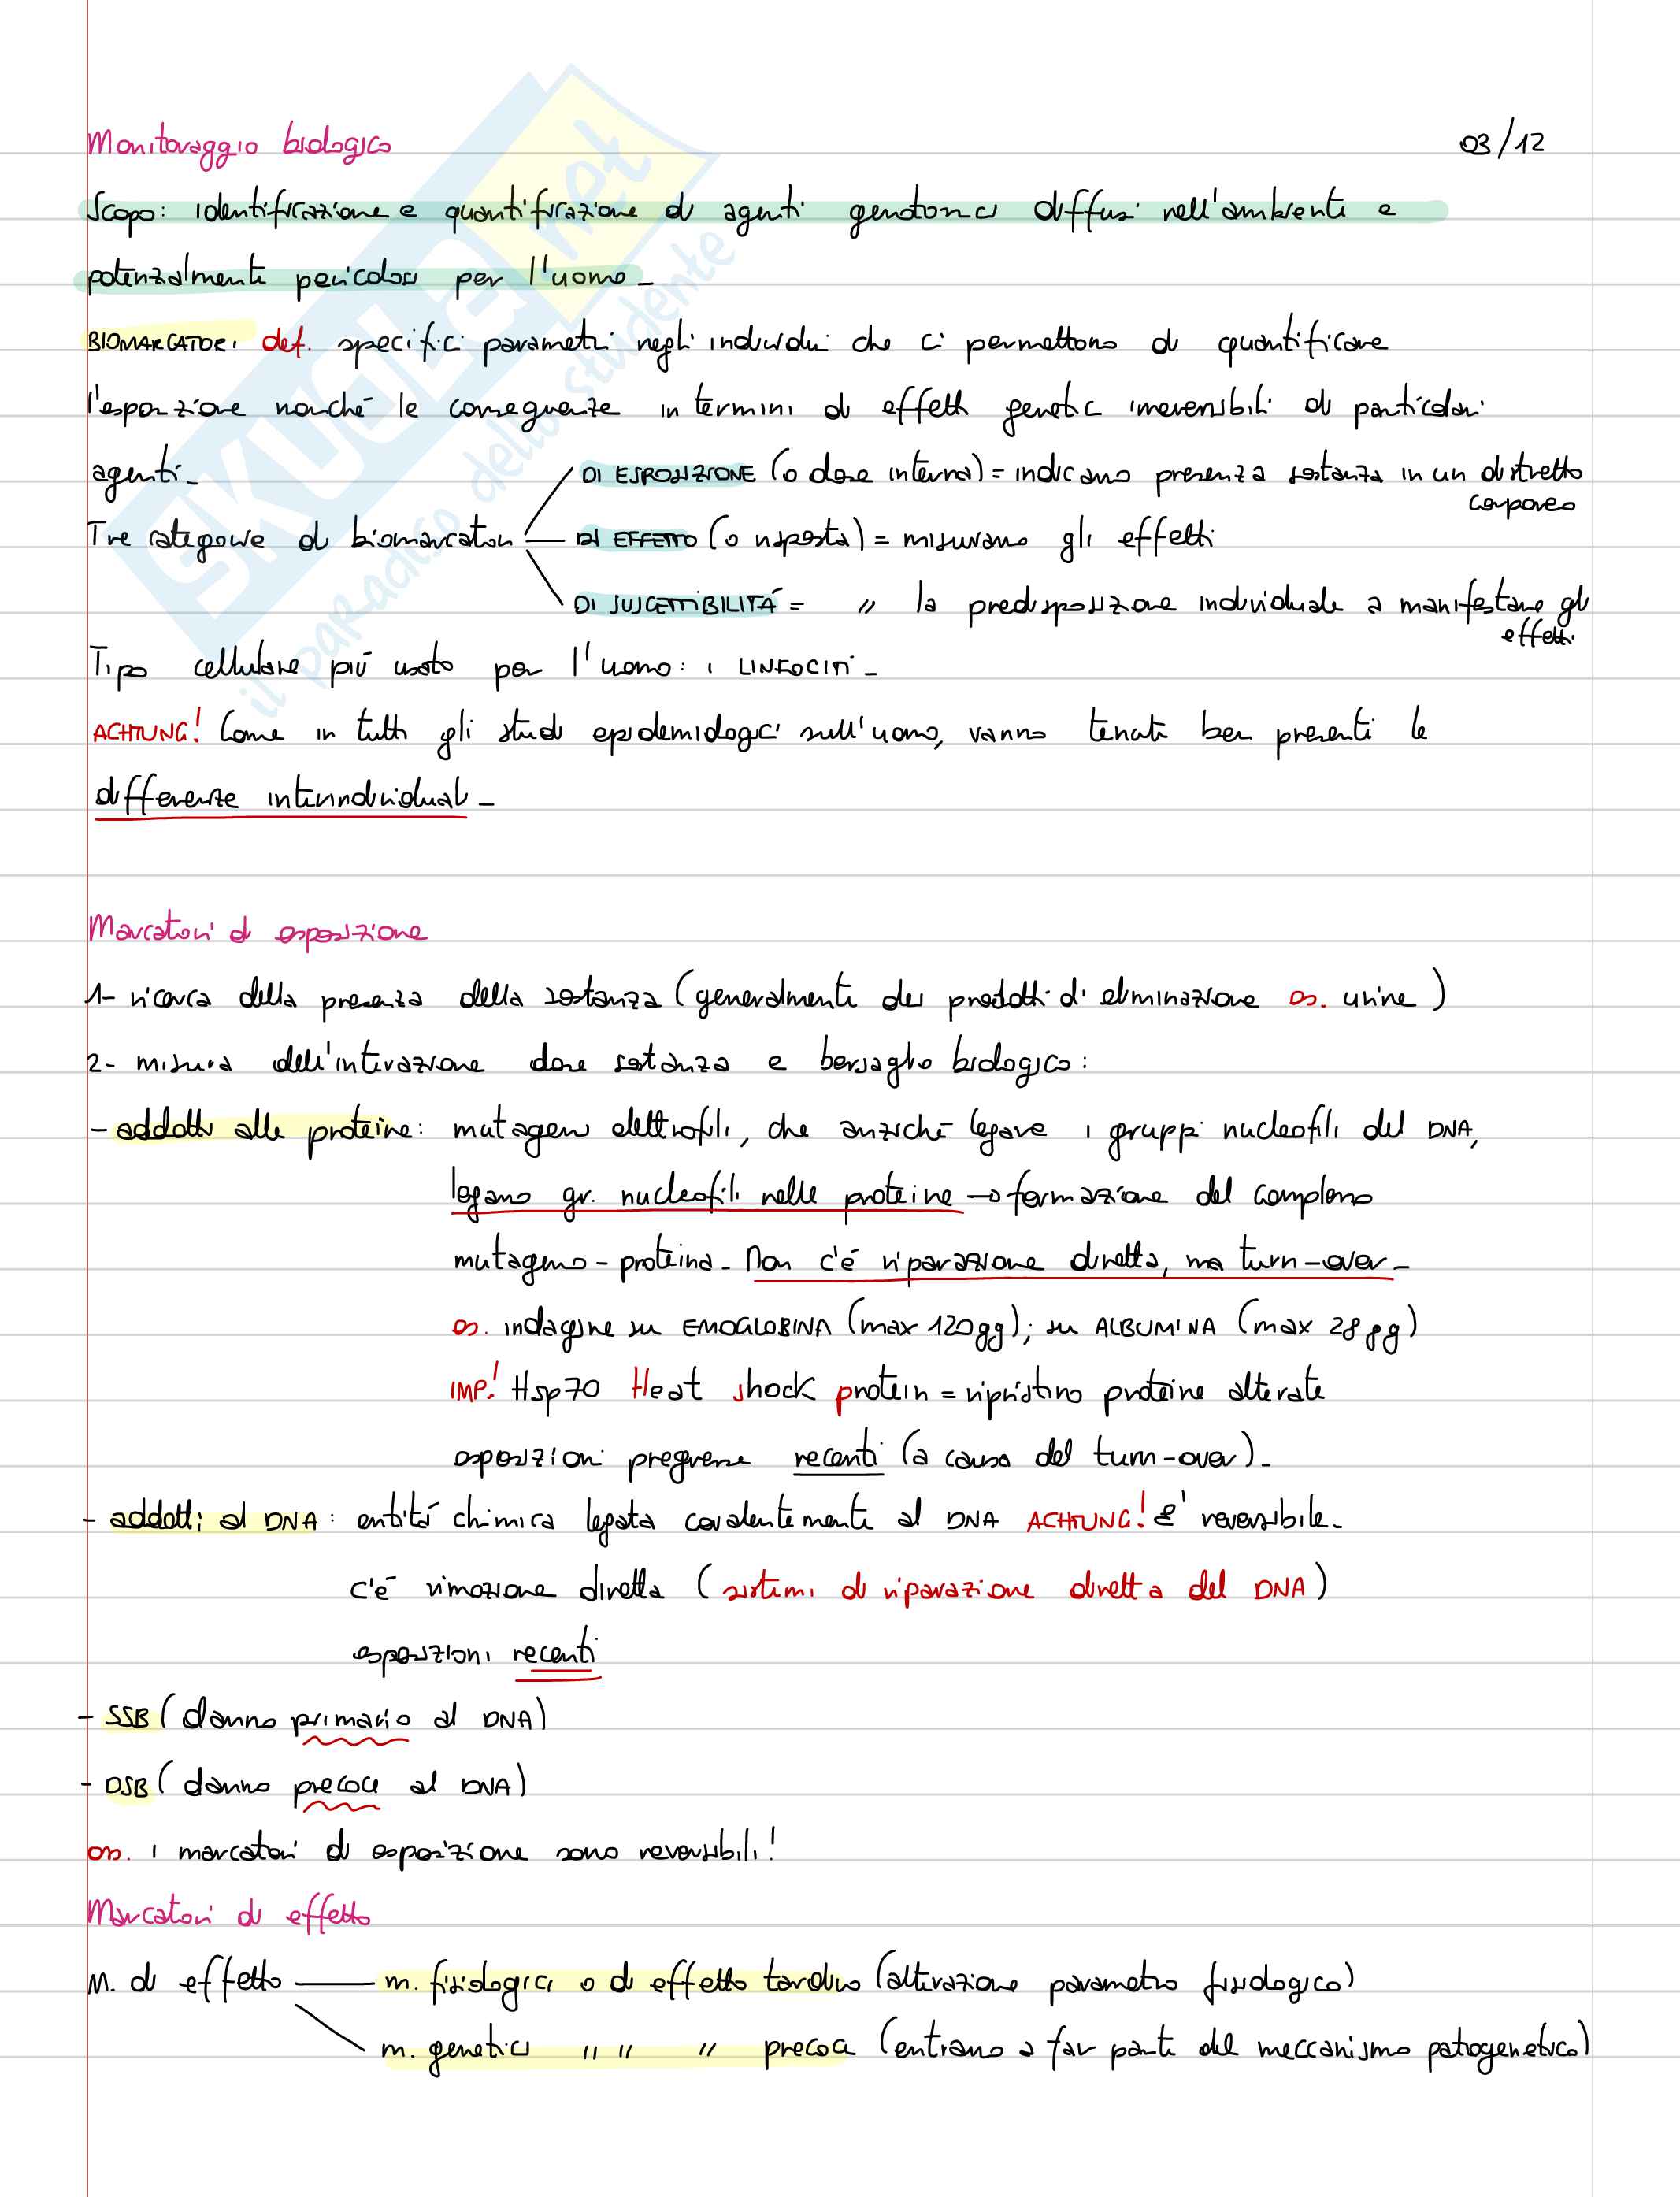 Monitoraggio biologico 03/12
Scopo: identificazione e quantificazione di agenti genotossici diffusi nell'ambiente e
potenzialmente pericolosi per l'uomo_
BIOMARCATORI def. specifici parametri negli individui che ci permettono di quantificare
l'esposizione nonché le conseguenze in termini di effetti genetici irreversibili di particolari
agenti_
DI ESPOSIZIONE (o dose interna) = indicano presenza sostanza in un distretto
corporeo
Tre categorie di biomarcatori DI EFFETTO (o risposta) = misurano gli effetti
DI SUSCETTIBILITÁ = " la predisposizione individuale a manifestare gli
effetti
Tipo cellulare più usato per l'uomo: i LINFOCITI_
ACHTUNG! Come in tutti gli studi epidemiologici sull'uomo, vanno tenuti ben presenti le
differenze interindividuali_
Marcatori di esposizione
1- ricerca della presenza della sostanza (generalmente dei prodotti di eliminazione es. urine)
2- misura dell'interazione dose sostanza e bersaglio biologico:
- addotti alle proteine: mutageni elettrofili, che anziché legare i gruppi nucleofili del DNA,
legano gr. nucleofili nelle proteine → formazione del complesso
mutageno-proteina_ Non c'é riparazione diretta, ma turn-over_
es. indagine su EMOGLOBINA (max 120gg); su ALBUMINA (max 28gg)
IMP! Hsp70 Heat shock protein = ripristino proteine alterate
esposizioni pregresse recenti (a causa del turn-over)_
- addotti al DNA: entitá chimica legata covalentemente al DNA ACHTUNG! E' reversibile_
c'é rimozione diretta (sistemi di riparazione diretta del DNA)
esposizioni recenti
- SSB (danno primario al DNA)
- DSB (danno precoce al DNA)
oss. i marcatori di esposizione sono reversibili!
Marcatori di effetto
M. di effetto m. fisiologici o di effetto tardivo (alterazione parametro fisiologico)
m. genetici " " " precoce (entrano a far parte del meccanismo patogenetico)
SKUOLA.net
il paradiso dello studente